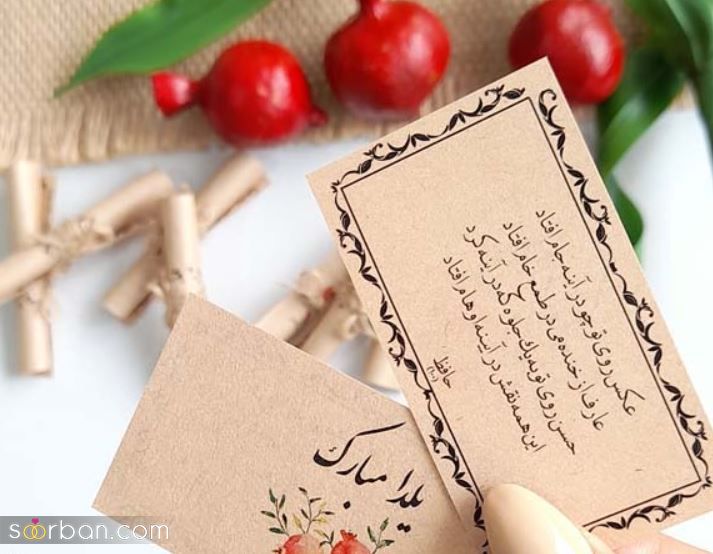 عکس روی تو چو در آینه جام افتاد
عارف از خنده می در طمع خام افتاد
حسن روی تو به یک جلوه که در آینه کرد
این همه نقش در آیینه اوهام افتاد
حافظ
یلدا مبارک
soorban.com